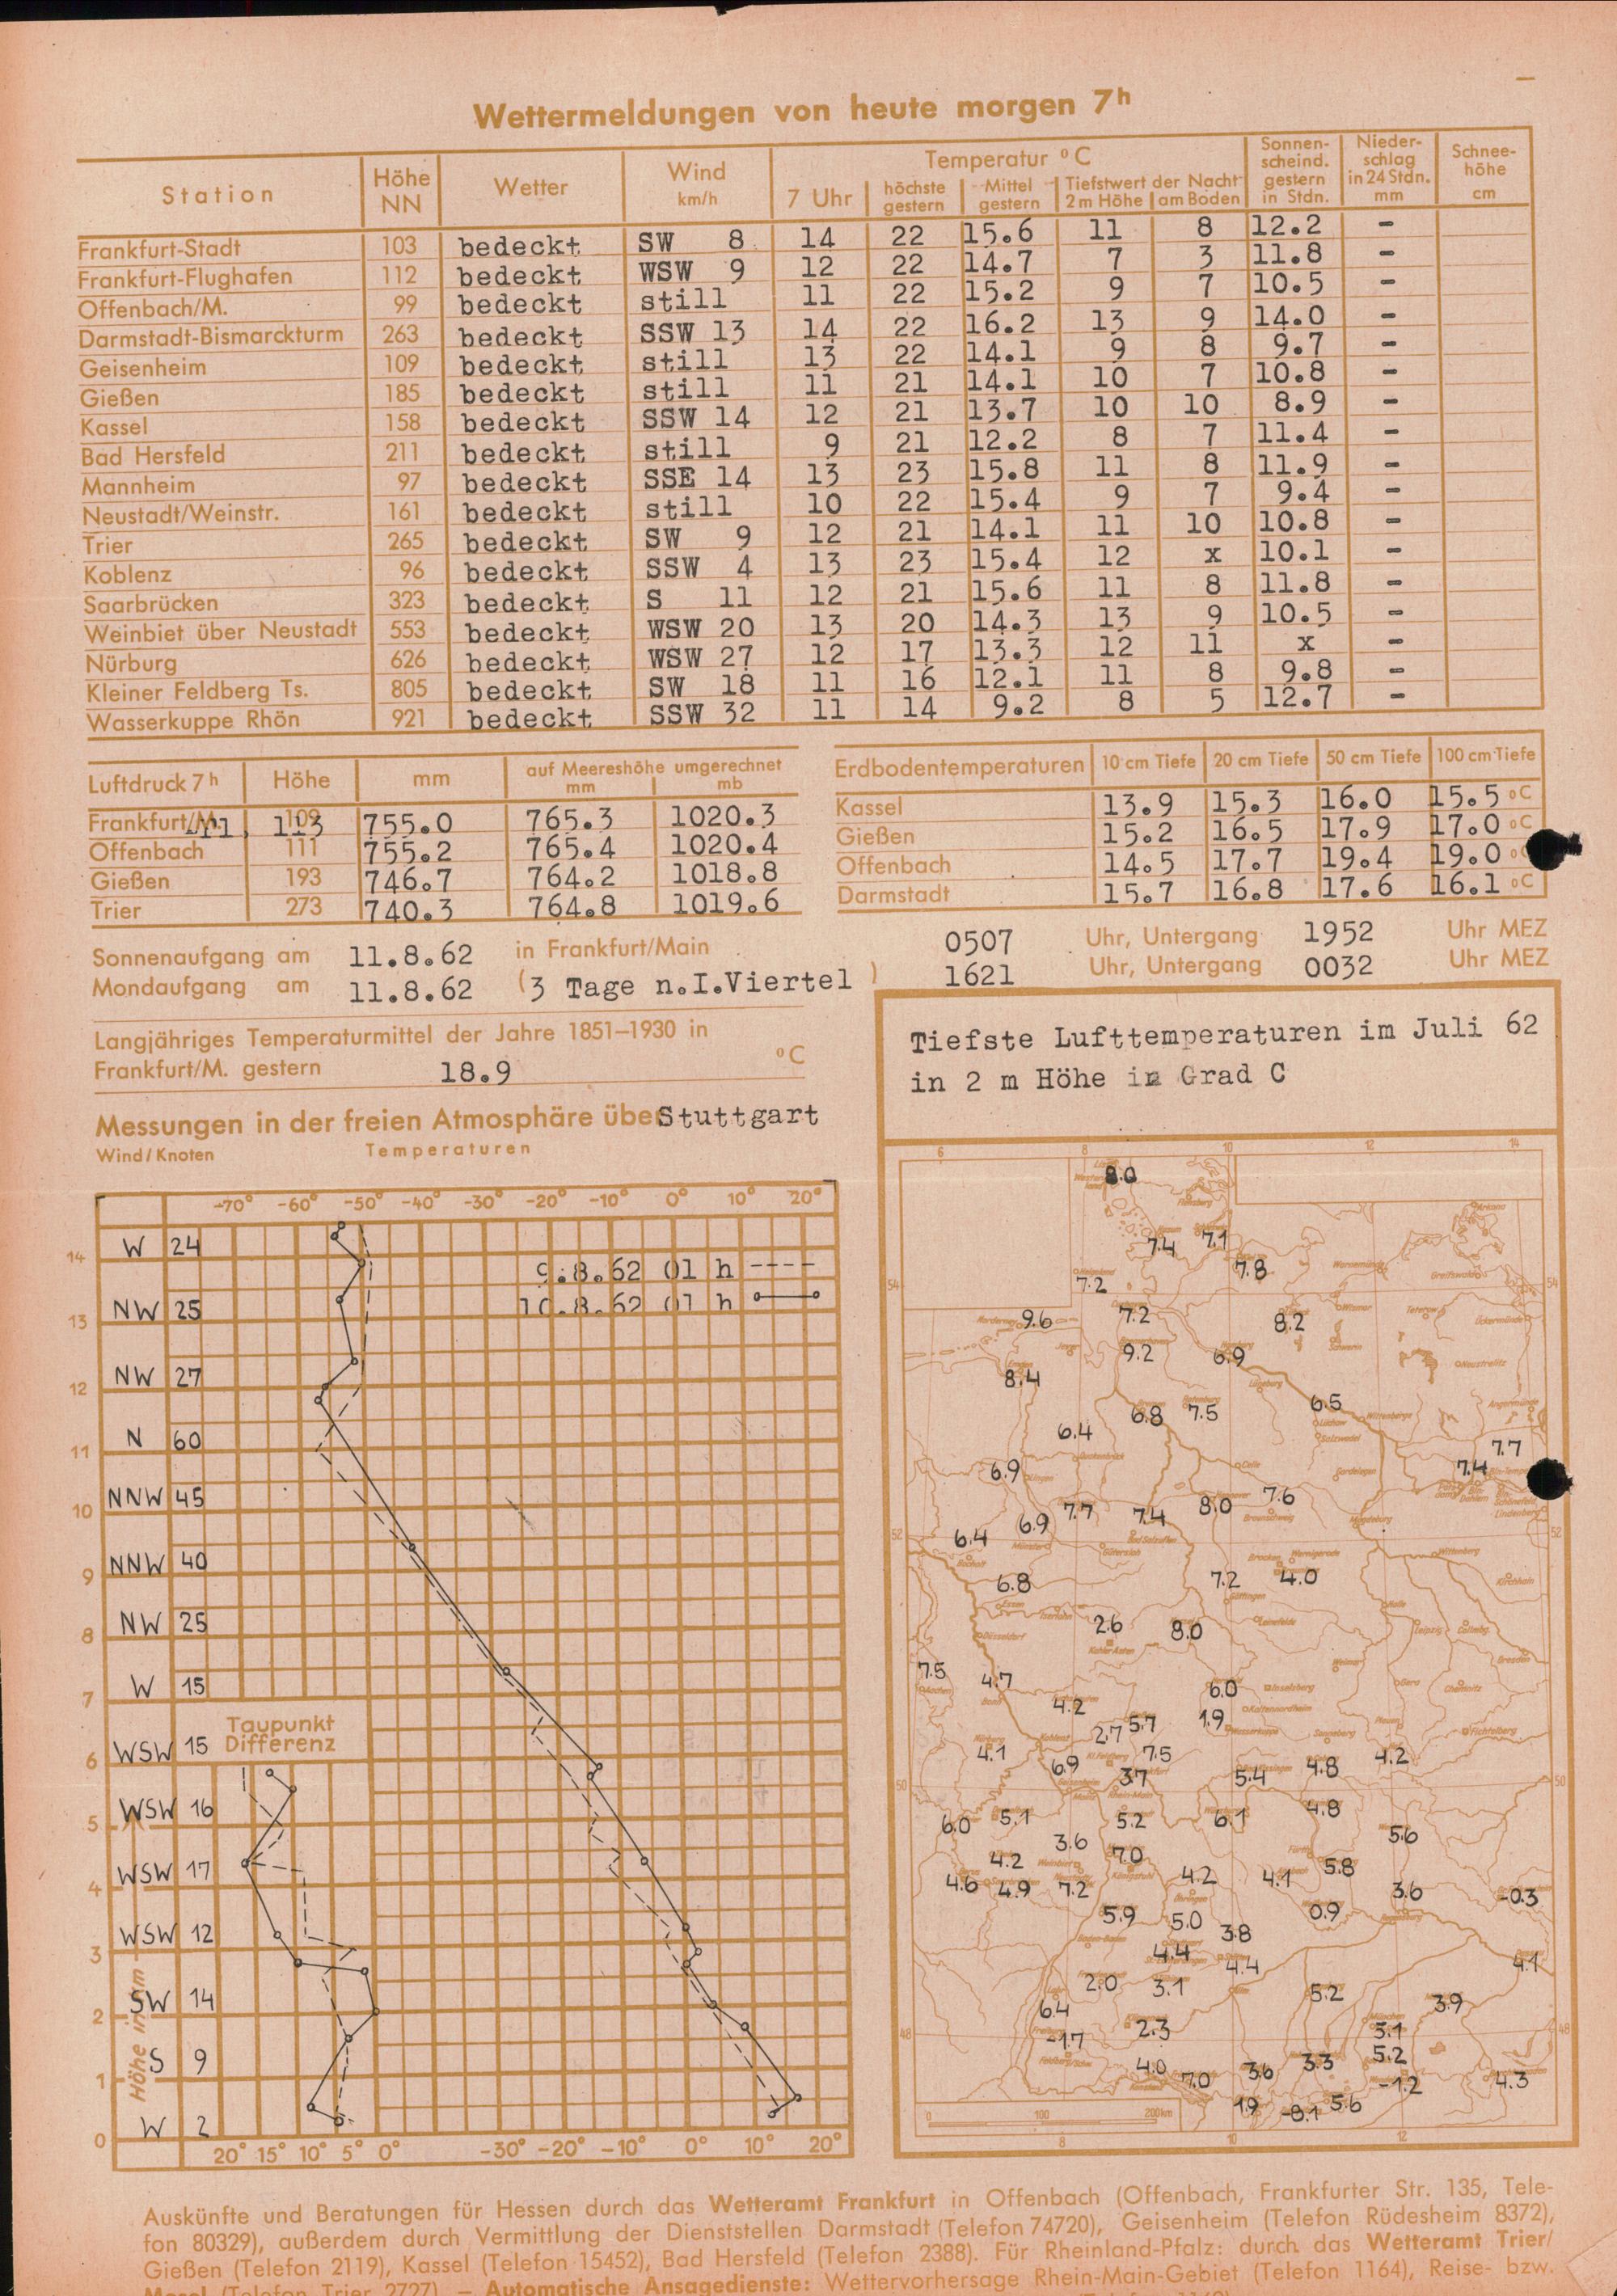 Wettermeldungen von heute morgen 7h
Station Höhe NN Wetter Wind km/h Temperatur °C Sonnenscheind. gestern in Stdn. Niederschlag in 24 Stdn. mm Schneehöhe cm
7 Uhr höchste gestern Mittel gestern Tiefstwert der Nacht 2 m Höhe am Boden
Frankfurt-Stadt 103 bedeckt SW 8 14 22 15.6 11 8 12.2 -
Frankfurt-Flughafen 112 bedeckt WSW 9 12 22 14.7 7 3 11.8 -
Offenbach/M. 99 bedeckt still 11 22 15.2 9 7 10.5 -
Darmstadt-Bismarckturm 263 bedeckt SSW 13 14 22 16.2 13 9 14.0 -
Geisenheim 109 bedeckt still 13 22 14.1 9 8 9.7 -
Gießen 185 bedeckt still 11 21 14.1 10 7 10.8 -
Kassel 158 bedeckt SSW 14 12 21 13.7 10 10 8.9 -
Bad Hersfeld 211 bedeckt still 9 21 12.2 8 7 11.4 -
Mannheim 97 bedeckt SSE 14 13 23 15.8 11 8 11.9 -
Neustadt/Weinstr. 161 bedeckt still 10 22 15.4 9 7 9.4 -
Trier 265 bedeckt SW 9 12 21 14.1 11 10 10.8 -
Koblenz 96 bedeckt SSW 4 13 23 15.4 12 x 10.1 -
Saarbrücken 323 bedeckt S 11 12 21 15.6 11 8 11.8 -
Weinbiet über Neustadt 553 bedeckt WSW 20 13 20 14.3 13 9 10.5 -
Nürburg 626 bedeckt WSW 27 12 17 13.3 12 11 x -
Kleiner Feldberg Ts. 805 bedeckt SW 18 11 16 12.1 11 8 9.8 -
Wasserkuppe Rhön 921 bedeckt SSW 32 11 14 9.2 8 5 12.7 -
Luftdruck 7h Höhe mm auf Meereshöhe umgerechnet mm mb
Frankfurt/M. 113 755.0 765.3 1020.3
Offenbach 111 755.2 765.4 1020.4
Gießen 193 746.7 764.2 1018.8
Trier 273 740.3 764.8 1019.6
Erdbodentemperaturen 10 cm Tiefe 20 cm Tiefe 50 cm Tiefe 100 cm Tiefe
Kassel 13.9 15.3 16.0 15.5 °C
Gießen 15.2 16.5 17.9 17.0 °C
Offenbach 14.5 17.7 19.4 19.0 °C
Darmstadt 15.7 16.8 17.6 16.1 °C
Sonnenaufgang am 11.8.62 in Frankfurt/Main 0507 Uhr, Untergang 1952 Uhr MEZ
Mondaufgang am 11.8.62 (3 Tage n.I.Viertel ) 1621 Uhr, Untergang 0032 Uhr MEZ
Langjähriges Temperaturmittel der Jahre 1851–1930 in
Frankfurt/M. gestern 18.9 °C
Messungen in der freien Atmosphäre über Stuttgart
Wind/Knoten Temperaturen
-70° -60° -50° -40° -30° -20° -10° 0° 10° 20°
14 W 24
9.8.62 01 h
10.8.62 01 h
13 NW 25
12 NW 27
11 N 60
10 NNW 45
9 NNW 40
8 NW 25
7 W 15
6 WSW 15 Taupunkt
Differenz
5 WSW 16
4 WSW 17
3 WSW 12
2 SW 14
1 S 9
0 W 2
Höhe in km
20° 15° 10° 5° 0° -30° -20° -10° 0° 10° 20°
Tiefste Lufttemperaturen im Juli 62
in 2 m Höhe in Grad C
6 8 10 12 14
8.0
7.4 7.1
7.2 7.8
54 54
9.6 7.2 8.2
9.2 6.9
8.4
6.8 7.5 6.5
6.4
7.7
6.9 7.4
7.7 7.4 8.0 7.6
6.4 6.9
52 52
6.8 7.2 4.0
2.6 8.0
7.5 4.7
4.2 6.0
2.7 5.7 1.9
4.1 6.9 7.5 4.2
3.7 5.4 4.8
50 50
6.0 5.1 5.2 6.1 4.8
3.6 5.6
4.2 7.0 5.8
4.6 4.9 7.2 4.2 4.1 3.6 -0.3
5.9 5.0 0.9
3.8
4.4 4.4 4.1
2.0 3.1 5.2 3.9
6.4
48 -1.7 2.3 5.1 48
4.0 3.6 3.3 5.2
7.0 -1.2 4.3
1.9 -8.1 5.6
0 100 200km
8 10 12
Auskünfte und Beratungen für Hessen durch das Wetteramt Frankfurt in Offenbach (Offenbach, Frankfurter Str. 135, Tele-
fon 80329), außerdem durch Vermittlung der Dienststellen Darmstadt (Telefon 74720), Geisenheim (Telefon Rüdesheim 8372),
Gießen (Telefon 2119), Kassel (Telefon 15452), Bad Hersfeld (Telefon 2388). Für Rheinland-Pfalz: durch das Wetteramt Trier/
Mosel (Telefon Trier 2727). – Automatische Ansagedienste: Wettervorhersage Rhein-Main-Gebiet (Telefon 1164), Reise- bzw.